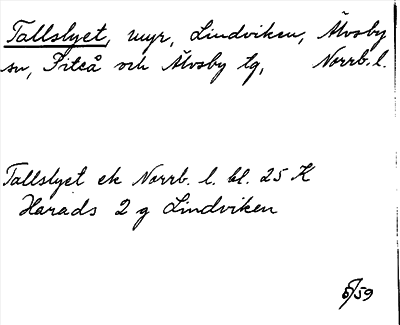 Tallslyet, myr, Lindviken, Älvsby
sn, Piteå och Älvsby tg, Norrb. l.
Tallslyet ek Norrb. l. bl. 25 K
Harads 2 g Lindviken
5/59